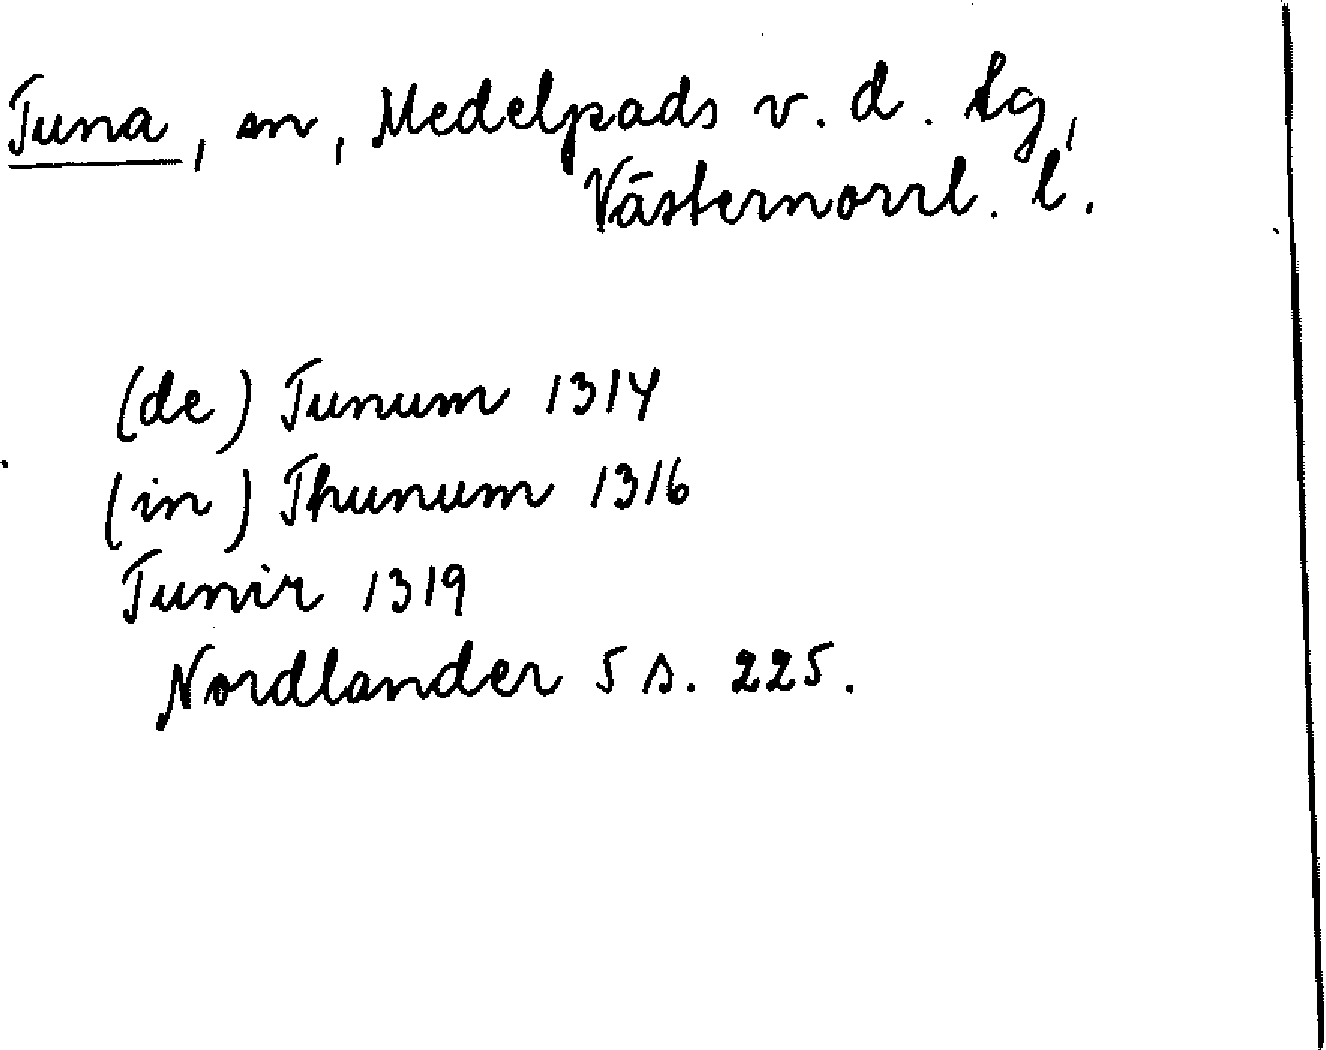 Tuna, sn, Medelpads v. d. tg,
Västernorrl. l.
(de) Tunum 1314
(in) Thunum 1316
Tunir 1319
Nordlander 5 s. 225.